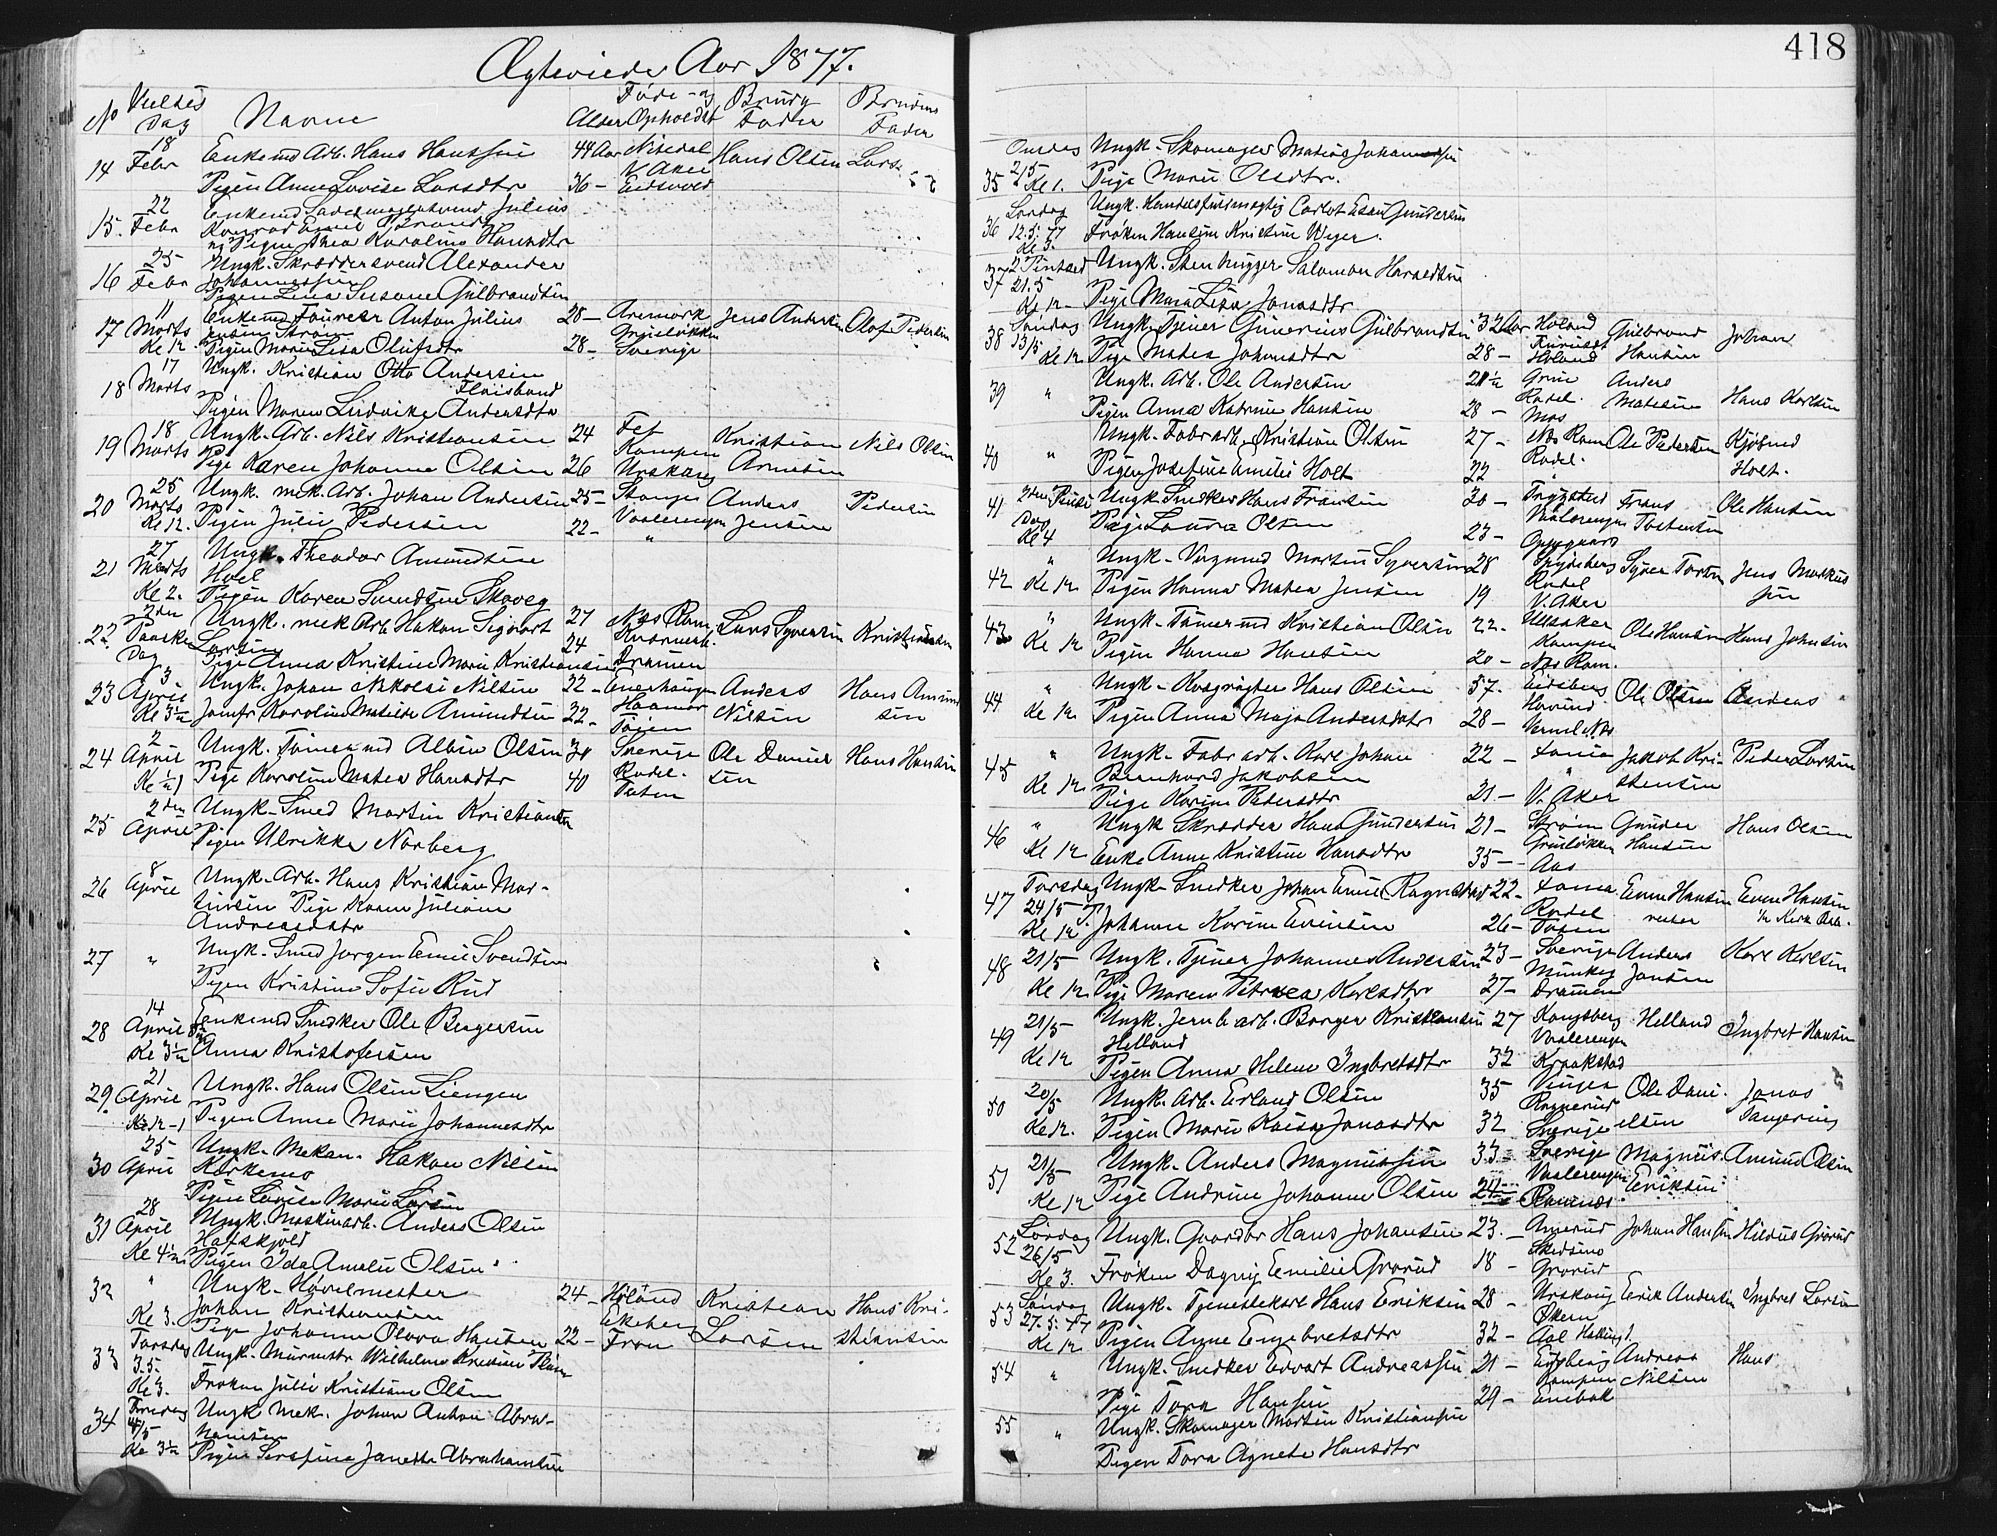 418
Ægteviede Aar 1877.
No Vielses Dag Navne Alder Føde- og Opholdst Brudg Fader Brudens Fader
14 18 Febr Enkemd Arb. Hans Hanssen 44 Aar Nitedal Hans Olsen Lars
V. Aker
Pigen Anne Lovise Larsdtr 36 - Eidsvold
15. 22 Febr Enkemd Julius
Konrad Emil
og Pigen Thea Karoline Hansdtr
16 25 Febr Ungk. Skræddersvend Alexander
Johannessen
Pigen Lina Susanne Gulbrandsen
17 11 Marts Enkemd Anton Julius 28 - Aremark Jens Andersen Olof Pedersen
Jensen Strøm
Kl 12 Pigen Marie Lisa Olufsdtr 28 - Sverige
18 17 Marts Ungk. Kristian Otto Andersen
Pigen Maren Ludvike Andersdtr
19 18 Marts Ungk. Arb. Nils Kristiansen 24 Fet Kristian Nils Olsen
Kampen
Pige Karen Johanne Olsen 26 Urskoug Arnesen
20 25 Marts Ungk. mek. Arb. Johan Andersen 25 - Stange Anders Pedersen
Kl 12. Pigen Julie Pedersen 22 - Vaalerengen Jensen
"
21 27 Marts Ungk. Theodor Amundsen
Hoel
Kl 2. Pigen Karen Skoveg
22. 2den Paaske Dag Ungk. mek Arb. Hakon Sigvart 27 Næs Rom. Lars Syversen Kristiansen
Larsen 24
Pige Anna Kristine Marie Kristiansen Dramen
23 3 April Ungk. Johan Nikolai Nilsen 22 - Enerhaugen Anders Hans Amund
Hammar
Kl 3½ Jomfr Karoline Matilde Amundsen 22 - Nilsen sen
Tøien
24 2 April Ungk. Tømmermd Albin Olsen 31 Sverige Ole Daniel Hans Hansen
Rodel.
Kl ½1 Pige Karoline Matea Hansdtr 40 Toten sen
25 2den April Ungk. Smed Martin Kristiansen
Pigen Ulrikke Norberg
26 8 April Ungk. Arb. Hans Kristian Mar-
tinsen Pige Karen Juliane
Andreasdtr
27 " Ungk. Smed Jørgen Emil Svendsen
Pigen Kristine Sofie Rud
28 14 April Enkemd Snedker Ole Bergersen
Kl 3½ Anna Kristofersen
29. 21 April Ungk. Hans Olsen Liengen
Kl 12-1 Pigen Anne Marie Johannesdtr
30 25 April Ungk. Mekan. Hakon Nilsen
Kirkemo
Pigen Lovise Marie Larsen
31 28 April Ungk. Maskinarb. Anders Olsen
Hafskjold
Kl 4½ Pigen Ida Amalie Olsen
32 " Ungk. Høvelmester 24 - Høland Kristian Hans Kri-
Kl 3. Johan Kristiansen Larsen stiansen
Pige Johanne Olava Hansen 22 - Fron
33 Torsdag 3.5. Ungk. Murmstr Wilhelm Kristian
Kl 3. Frøken Julie Kristiane Olsen
34 Fredag 4/5 Ungk Mek. Johan Anton Abra-
hamsen
Kl 3½ Pigen Serafine Janette Abrahamsen
35 Onsdag 2/5 Ungk. Skomager Matias Johannesen
Kl 1. Pige Marie Olsdtr.
36 Lørdag 12.5.77 Ungk. Handelsfuldmægtig Carlot Esau Gundersen
Kl 3. Frøken Hansine Kristine Weger.
37 2 Pintsed 21.5 Ungk. Stenhugger Salomon Haraldsen
Kl 12 - Pige Maria Lisa Jonasdtr
38 Søndag 13/5 Ungk. Tjener Gunerius Gulbrandsen 32 Aar Høland Gulbrand Johan
Furuset
Kl 12 Pige Matea Johansdtr 28 - Høland Hansen
39 " Ungk. Arb. Ole Andersen 21½ Grue Anders
Rodel.
Pigen Anna Katrine Hansen 28 - Mos Matisen Hans Karlsen
40 " Ungk. Fabr arb. Kristian Olsen 27 - Næs Rom Ole Pedersen Kjøbmd
Pigen Josefine Emilie Holt 22 Rodel. Holt.
41 2den Pintse Dag Ungk. Snedker Hans Fransen 30 - Trygstad Frans Ole Hansen
Vaalerengen
Kl 4 Pige Laura Olsen 23 - Oppegaard Tostensen
42 " Ungk. Martin Syversen 28 Spydeberg Syver Torst Jens Markus
Rodel
Kl 12 Pigen Hanna Matea Jensen 19 V. Aker sen
43 " Ungk. Tømermd Kristian Olsen 22. Ullensaker Ole Hansen Hans Johnsen
Kampen
Kl 12 Pigen Hanna Hansen 20 - Næs Rom.
44 " Ungk. Hans Olsen 57. Eidsberg Ole Olsen Anders
Kl 12 Pigen Anna Maja Andersdatr 28 -
45 " Ungk. Fabr arb. Karl Johan 22 - Jakob Kri- Peder Larsen
Kl 12 Bernhard Jakobsen stensen
Pige Karine Pedersdtr 21 - V. Aker
46 " Ungk Skrædder Hans Gundersen 29 - Strøm Gunder Hans Olsen
Grünløkken
Kl 12 Enke Anne Kristine Hansdtr 35 - Aas Hansen
47 Torsdag 24/5 Ungk. Snedker Johan Emil Ragnstad 22 - Even Hansen
Rodel
Kl 12 P. Johanne Karine Evensen 26 - Toten
48 21/5 Ungk. Tjener Johannes Andersen 23 - Sverige Anders Karl Karlsen
Munkeg
Kl 12 Pige Maren Petrea Karlsdtr 27 - Dramen Jansen
49 21/5 Ungk. Jernb arb. Borger Kristiansen 27 Kongsberg Helland Ingbret Hansen
Helland Vaalerengen
Kl 12 Pigen Anna Helene Ingbretsdtr 32 Kraakstad
50 20/5 Ungk. Arb. Erland Olsen 35 Vinger Ole Dani- Jonas
Kl 12. Pigen Marie Kaisa Jonasdtr 32 Sverige elsen
51 21/5 Ungk. Anders Magnussen 33 - Sverige Magnus Amund Olsen
Vaalerengen
Kl 12 Pige Andrine Johanne Olsen 24 Eriksen
52 Lørdag 26/5 Ungk. Gaardbr Hans Johansen 23. - Amerud Johan Hansen Hildus Grorud
Skedsmo
Kl 3. Frøken Dagny Emilie Grorud 18 - Grorud
53 Søndag 27.5.77 Ungk. Tjenestekarl Hans Eriksen 28 - Urskoug Erik Andersen Ingbret Larsen
Økern
Kl 12 Pigen Anne Engebretsdtr 32 - Aal Halling.
54 " Ungk. Snedker Edvart Andreassen 21 - Eidsberg Andreas Hans
Kampen
Pige Tora Hansen 29 - Enebak Nilsen
55 " Ungk. Skomager Martin Kristiansen
Pigen Tora Agnete Hansdtr